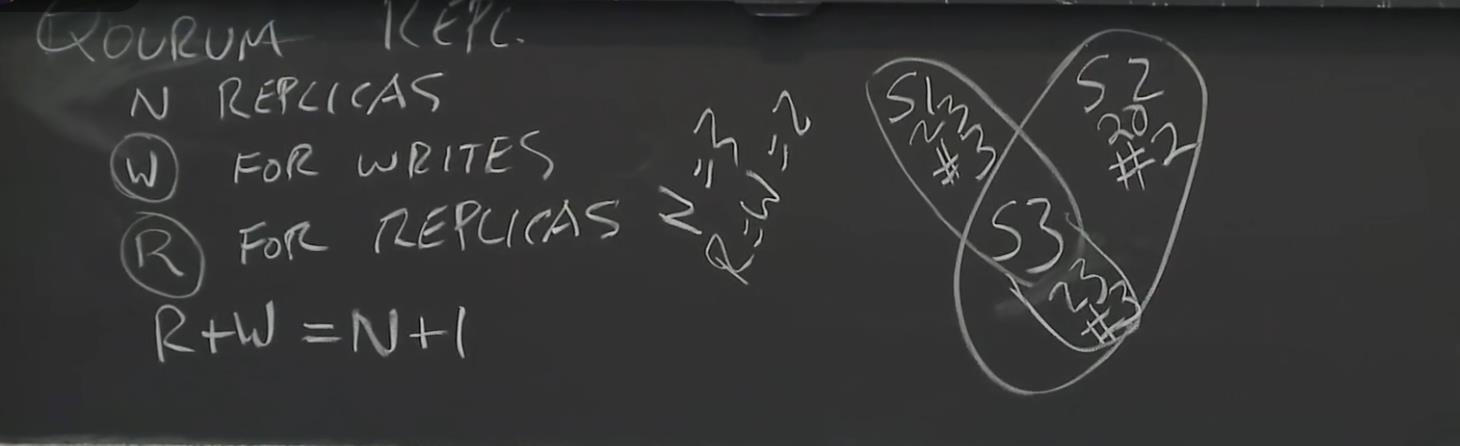 QOURUM REPL.
N REPLICAS
W FOR WRITES
R FOR REPLICAS
R+W = N+1
N=3
R=W=2
S1
23
#3
S2
20
#2
S3
23
#3